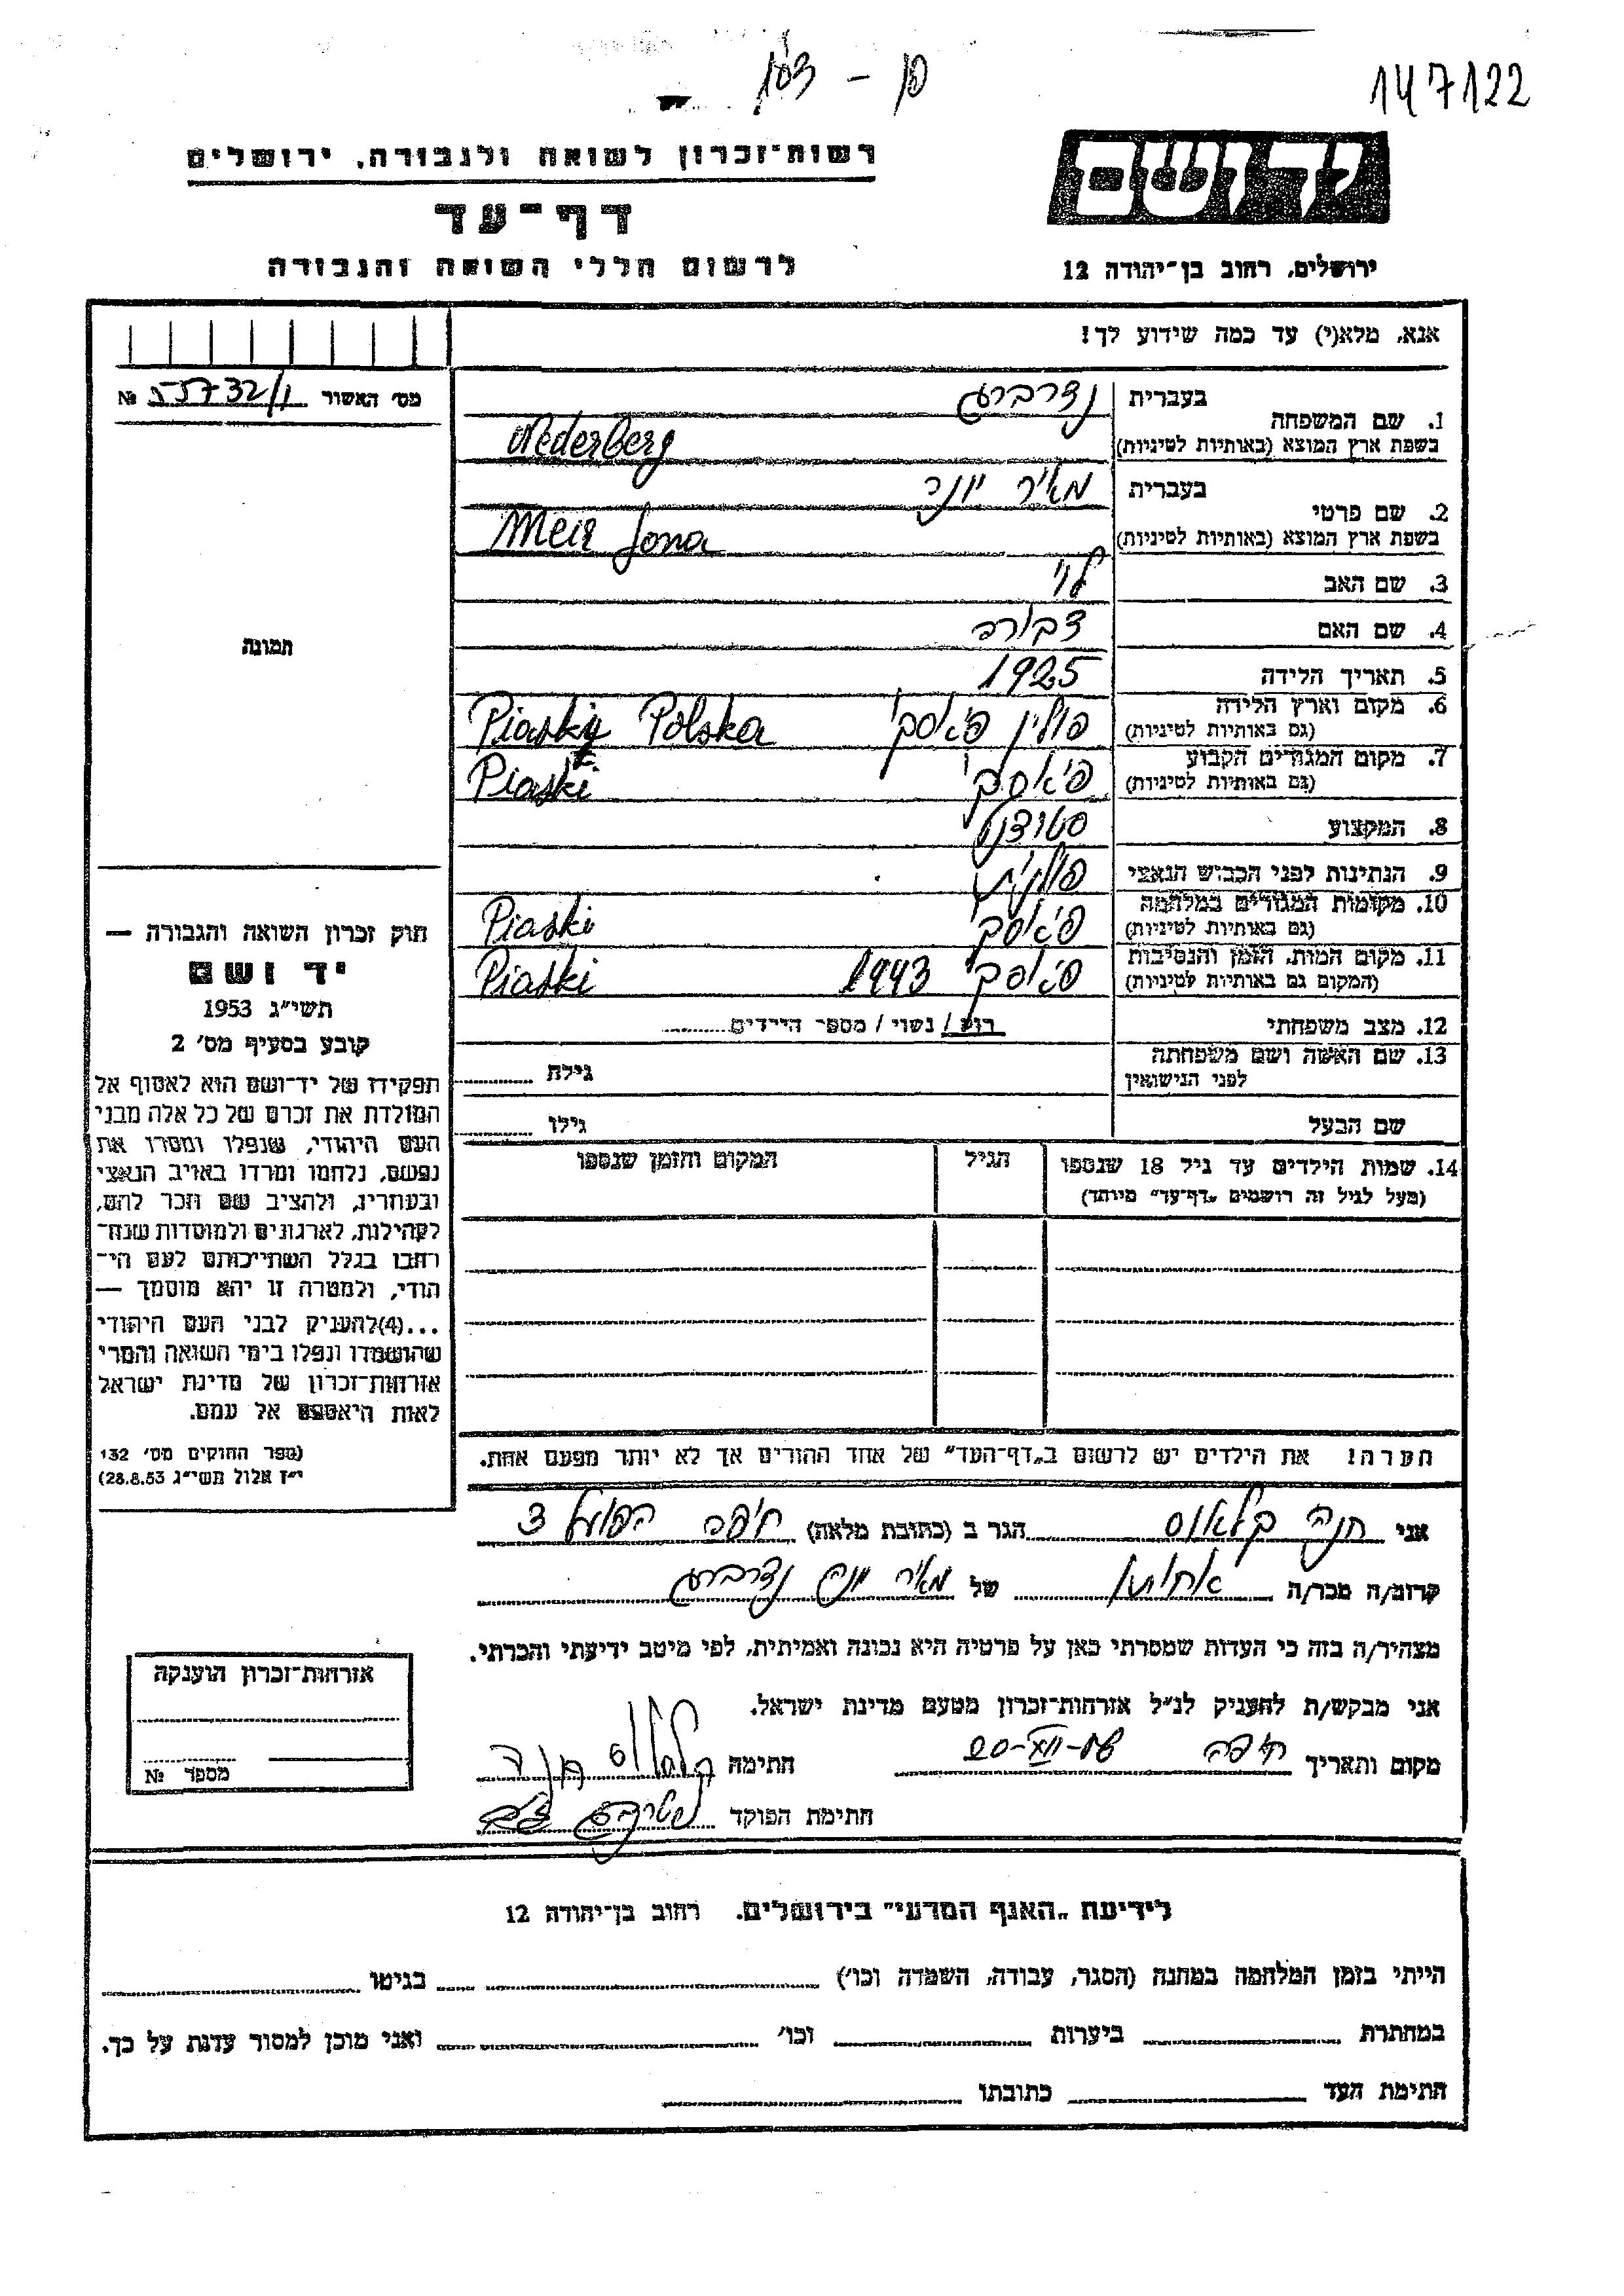 147122
יד ושם
רשות-זכרון לשואה ולגבורה, ירושלים
דף-עד
לרשום חללי השואה והגבורה
ירושלים, רחוב בן-יהודה 12
אנא, מלא(י) עד כמה שידוע לך!
מס' האשור № 55732/1
תמונה
1. שם המשפחה בעברית נדרברג
בשפת ארץ המוצא (באותיות לטיניות) Nederberg
2. שם פרטי בעברית מאיר יונה
בשפת ארץ המוצא (באותיות לטיניות) Meir Jona
3. שם האב לוי
4. שם האם דבורה
5. תאריך הלידה 1925
6. מקום וארץ הלידה (גם באותיות לטיניות) פולין פיאסקי Piaski Polska
7. מקום המגורים הקבוע (גם באותיות לטיניות) פיאסקי Piaski
8. המקצוע סטודנט
9. הנתינות לפני הכבוש הנאצי פולנית
10. מקומות המגורים במלחמה (גם באותיות לטיניות) פיאסקי Piaski
11. מקום המות, הזמן והנסיבות (המקום גם באותיות לטיניות) פיאסקי 1943 Piaski
12. מצב משפחתי רוק / נשוי / מספר הילדים
13. שם האשה ושם משפחתה לפני הנישואין גילה
שם הבעל גילו
14. שמות הילדים עד גיל 18 שנספו הגיל המקום והזמן שנספו
(מעל לגיל זה רושמים „דף-עד" מיוחד)
חוק זכרון השואה והגבורה —
יד ושם
תשי"ג 1953
קובע בסעיף מס' 2
תפקידו של יד-ושם הוא לאסוף אל
המולדת את זכרם של כל אלה מבני
העם היהודי, שנפלו ומסרו את
נפשם, נלחמו ומרדו באויב הנאצי
ובעוזריו, ולהציב שם וזכר להם,
לקהילות, לארגונים ולמוסדות שנח-
רבו בגלל השתייכותם לעם הי-
הודי, ולמטרה זו יהא מוסמך —
...(4)להעניק לבני העם היהודי
שהושמדו ונפלו בימי השואה והמרי
אזרחות-זכרון של מדינת ישראל
לאות היאספם אל עמם.
(ספר החוקים מס' 132
י"ז אלול תשי"ג 28.8.53)
הערה! את הילדים יש לרשום ב„דף-העד" של אחד ההורים אך לא יותר מפעם אחת.
אני חנה קלאוס הגר ב (כתובת מלאה) חיפה הפועל 3
קרוב/ה מכר/ה אחותו של מאיר יונה נדרברג
מצהיר/ה בזה כי העדות שמסרתי כאן על פרטיה היא נכונה ואמיתית, לפי מיטב ידיעתי והכרתי.
אני מבקש/ת להעניק לנ"ל אזרחות-זכרון מטעם מדינת ישראל.
מקום ותאריך חיפה חתימה קלאוס חנה
חתימת הפוקד
אזרחות-זכרון הוענקה
מספר №
לידיעת „האגף המדעי" בירושלים, רחוב בן-יהודה 12
הייתי בזמן המלחמה במחנה (הסגר, עבודה, השמדה וכו') בגיטו
במחתרת ביערות וכו' ואני מוכן למסור עדות על כך.
חתימת העד כתובתו